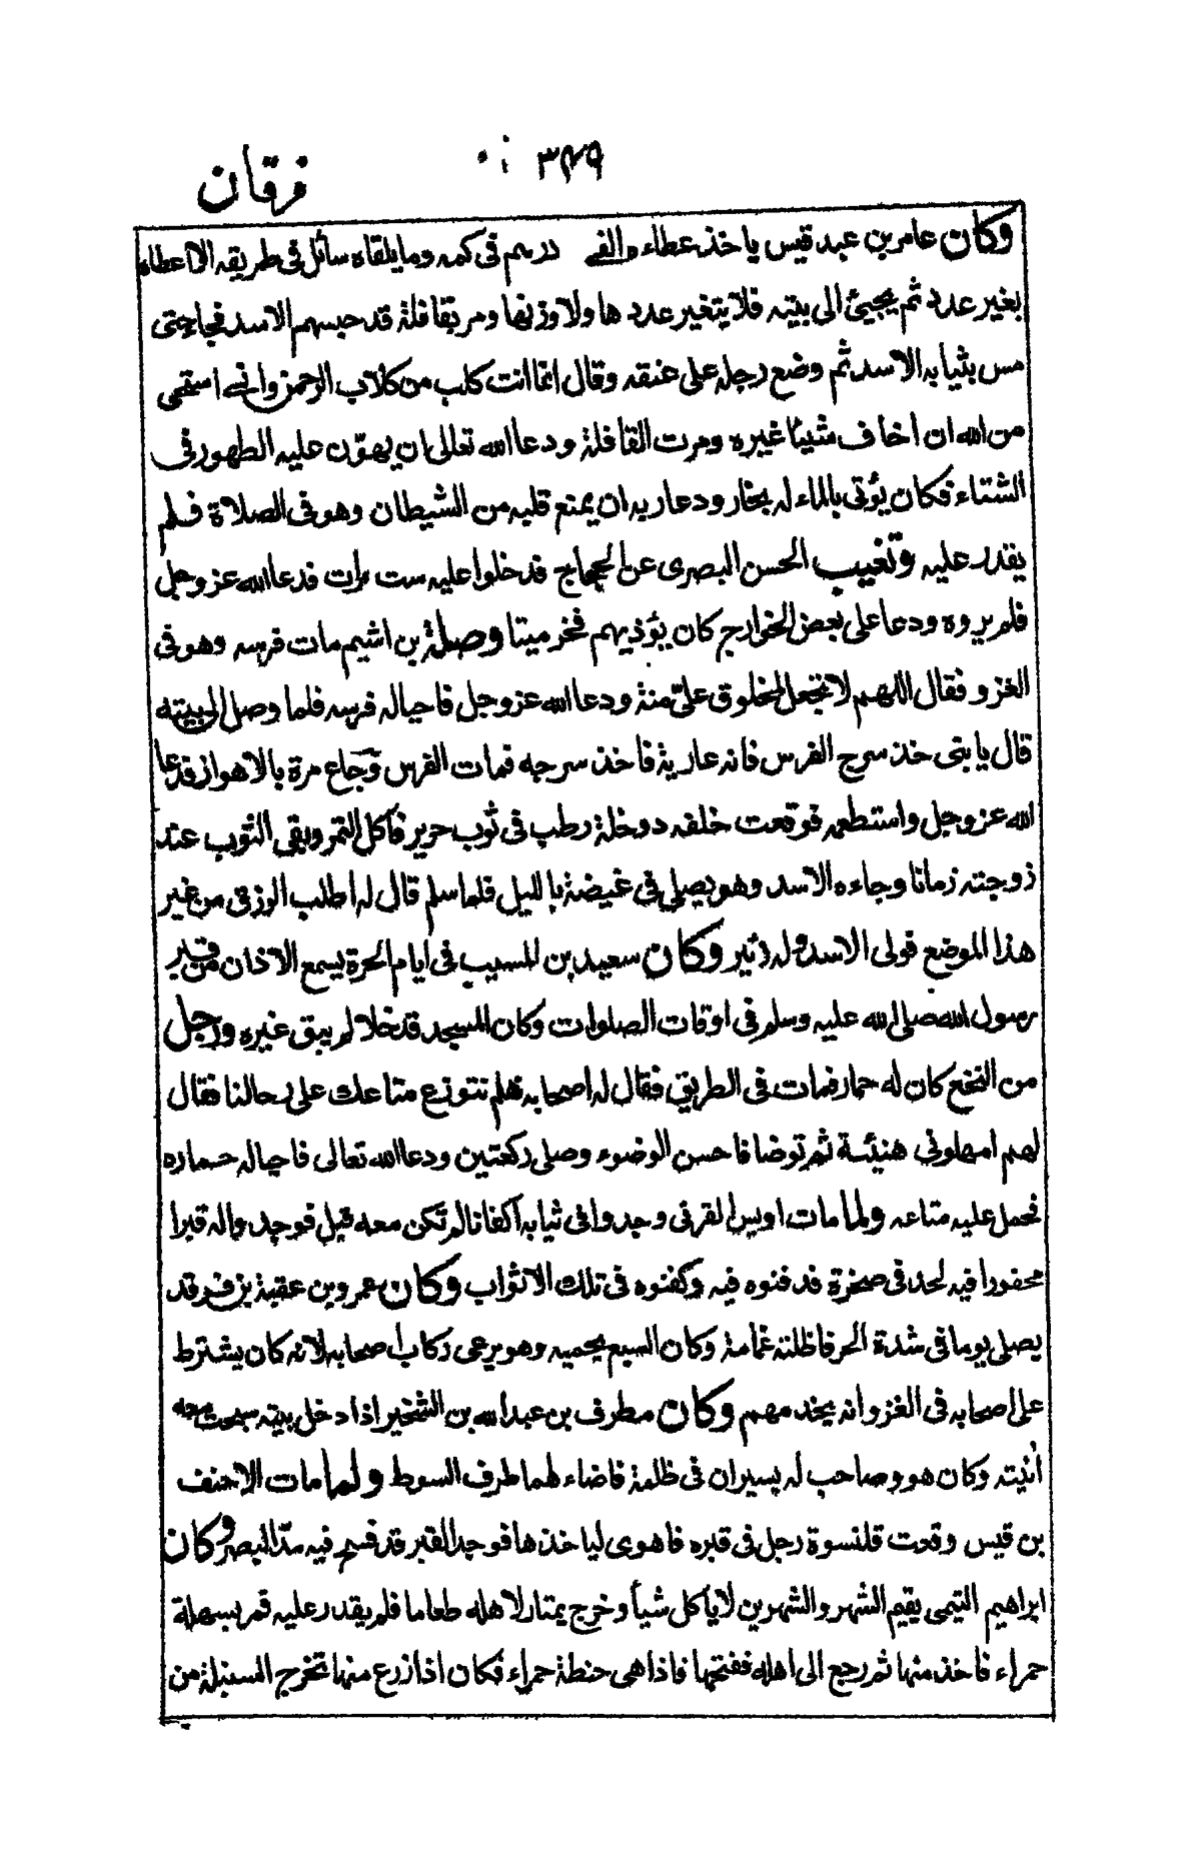 فرقان
٣٧٩
وكان عامر بن عبد قيس ياخذ عطاءه الفى درهم فى كمه وما يلقاه سائل فى طريقه الا اعطاه
بغير عدد ثم يجيئ الى بيته فلا يتغير عددها ولا وزنها ومر بقافلة قد حبسهم الاسد فجاء حتى
مس بثيابه الاسد ثم وضع رجله على عنقه وقال انما انت كلب من كلاب الرحمن وانى استحى
من الله ان اخاف شيئا غيره ومرت القافلة ودعا الله تعالى ان يهوّن عليه الطهور فى
الشتاء فكان يؤتى بالماء له بخار ودعا ربه ان يمنع قلبه من الشيطان وهو فى الصلاة فلم
يقدر عليه وتغيب الحسن البصرى عن الحجاج فدخلوا عليه ست مرات فدعا الله عز وجل
فلم يروه ودعا على بعض الخوارج كان يؤذيهم فخر ميتا وصلة بن اشيم مات فرسه وهو فى
الغزو فقال اللهم لا تجعل لمخلوق علىّ منة ودعا الله عز وجل فاحيا له فرسه فلما وصل الى بيته
قال يا بنى خذ سرج الفرس فانه عارية فاخذ سرجه فمات الفرس وجاع مرة بالاهواز فدعا
الله عز وجل واستطعمه فوقعت خلفه دوخلة رطب فى ثوب حرير فاكل التمر وبقى الثوب عند
زوجته زمانا وجاءه الاسد وهو يصلى فى غيضة بالليل فلما سلم قال له اطلب الرزق من غير
هذا الموضع فولى الاسد وله زئير وكان سعيد بن المسيب فى ايام الحرة يسمع الاذان من قبر
رسول الله صلى الله عليه وسلم فى اوقات الصلوات وكان المسجد قد خلا لم يبق غيره ورجل
من النخع كان له حمار فمات فى الطريق فقال له اصحابه هلم نتوزع متاعك على رحالنا فقال
لهم امهلونى هنيئة ثم توضا فاحسن الوضوء وصلى ركعتين ودعا الله تعالى فاحيا له حماره
فحمل عليه متاعه ولما مات اويس القرنى وجدوا فى ثيابه اكفانا لم تكن معه قبل فوجدوا له قبرا
محفورا فيه لحد فى صخرة فدفنوه فيه وكفنوه فى تلك الاثواب وكان عمرو بن عقبة بن فرقد
يصلى يوما فى شدة الحر فاظلته غمامة وكان السبع يحميه وهو يرعى ركاب اصحابه لانه كان يشترط
على اصحابه فى الغزو انه يخدمهم وكان مطرف بن عبد الله بن الشخير اذا دخل بيته سبحت معه
انيته وكان هو وصاحب له يسيران فى ظلمة فاضاء لهما طرف السوط ولما مات الاحنف
بن قيس وقعت قلنسوة رجل فى قبره فاهوى لياخذها فوجد القبر قد فسح فيه مدّ البصر وكان
ابراهيم التيمى يقيم الشهر والشهرين لا ياكل شيأ وخرج يمتار لاهله طعاما فلم يقدر عليه فمر بسهلة
حمراء فاخذ منها ثم رجع الى اهله ففتحها فاذا هى حنطة حمراء فكان اذا زرع منها تخرج السنبلة من